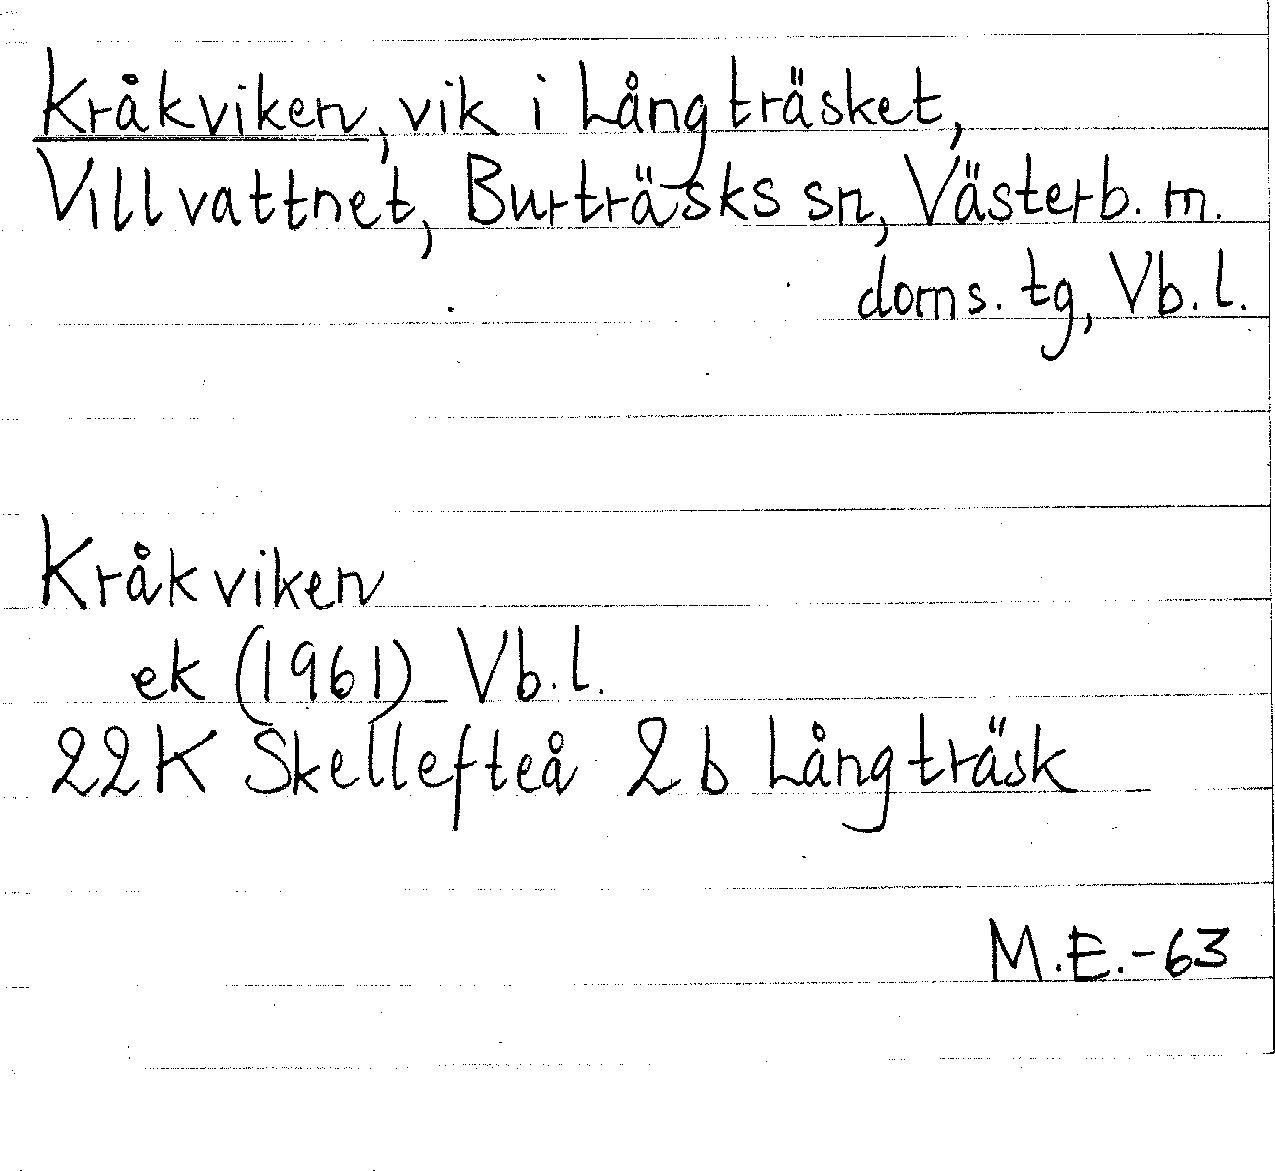 Kråkviken, vik i Långträsket,
Villvattnet, Burträsks sn, Västerb. m.
doms. tg, Vb. l.
Kråkviken
ek (1961) Vb. l.
22K Skellefteå 2b Långträsk
M.E.-63